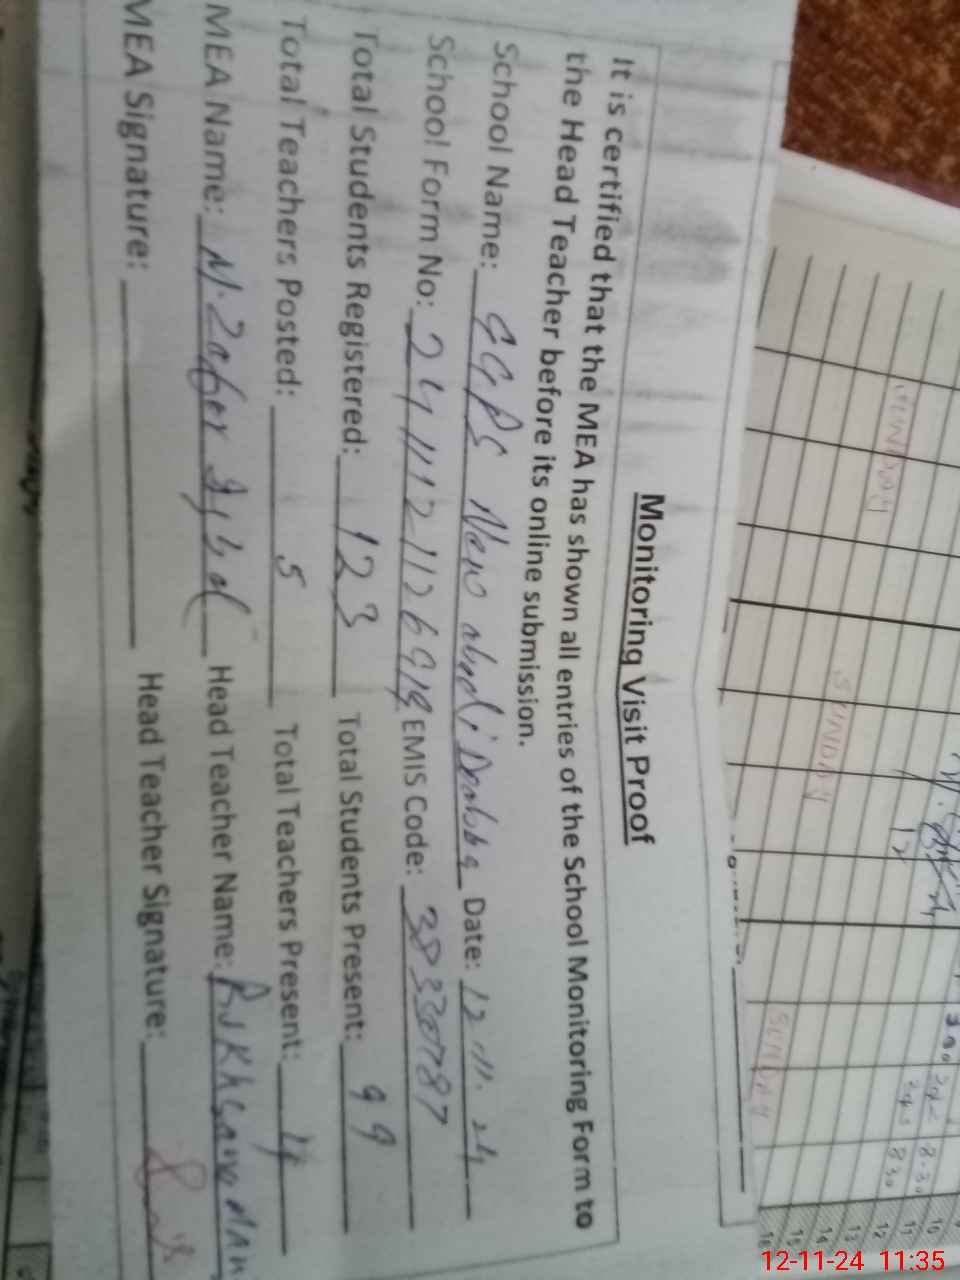 Monitoring Visit Proof
It is certified that the MEA has shown all entries of the School Monitoring Form to
the Head Teacher before its online submission.
School Name: GGPS New abadi Date: 12.11.24
School Form No: EMIS Code:
Total Students Registered: 123 Total Students Present: 99
Total Teachers Posted: 5 Total Teachers Present: 4
MEA Name: M. Zafar Iqbal Head Teacher Name:
MEA Signature: Head Teacher Signature:
SUNDAY
SUNDAY
SUNDAY
12
8.30
830
10
11
12
13
14
15
16
12-11-24 11:35